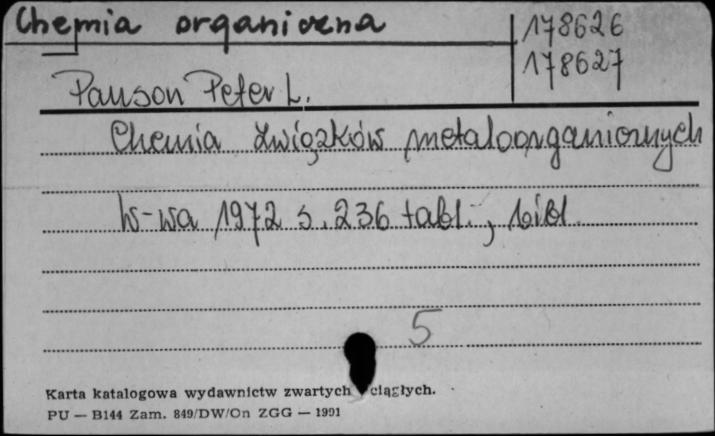 Chemia organiczna
178626
178627
Pauson Peter L.
Chemia związków metaloorganicznych
W-wa 1972 s. 236 tabl., bibl.
5
Karta katalogowa wydawnictw zwartych ciągłych.
PU — B144 Zam. 849/DW/On ZGG — 1991